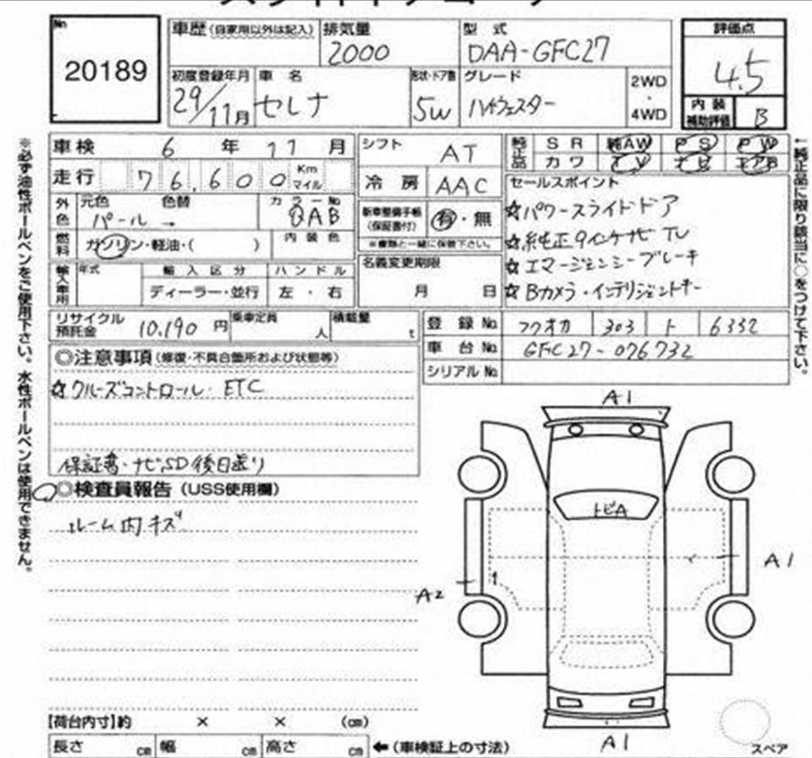 No 20189
車歴(自家用以外は記入) 排気量 2000 型式 DAA-GFC27
評価点 4.5
初度登録年月 29/11月 車名 セレナ 形状・ドア数 5W グレード ハイウェスター 2WD・4WD
内装補助評価 B
車検 6年11月 シフト AT 純正品 SR 純AW PS PW
走行 76,600 Km マイル 冷房 AAC カワ TV ナビ エアB
外色 元色 パール → 色替 カラーNo QAB
新車整備手帳(保証書付) 有・無
※書類と一緒に保管下さい。
燃料 ガソリン・軽油・( ) 内装色
セールスポイント
☆パワースライドドア
☆純正9インチナビ TV
☆エマージェンシーブレーキ
☆Bカメラ・インテリジェントキー
名義変更期限 月 日
輸入車用 年式 輸入区分 ハンドル
ディーラー・並行 左・右
リサイクル預託金 10,190円 乗車定員 人 積載量 t
登録No フクオカ 303 ト 6332
車台No GFC27-076732
シリアルNo
◎注意事項(修復・不具合箇所および状態等)
☆クルーズコントロール・ETC
保証書・ナビSD後日送り
◎検査員報告(USS使用欄)
ルーム内キズ
A1
トビA
A1
A2
A1
スペア
【荷台内寸】約 × × (cm)
長さ cm 幅 cm 高さ cm ←(車検証上の寸法)
※必ず油性ボールペンをご使用下さい。水性ボールペンは使用できません。
←純正品に限り項目に○をつけて下さい。